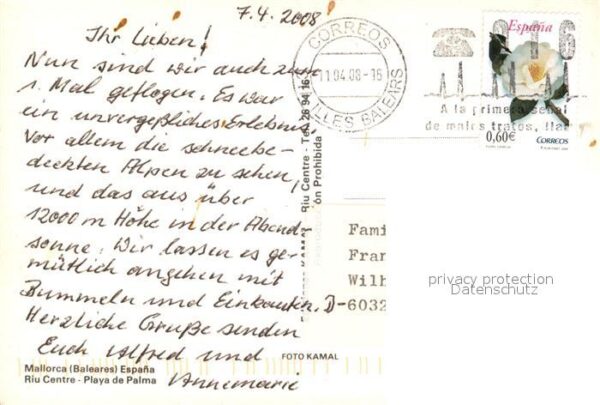 7.4.2008
Ihr Lieben!
Nun sind wir auch zum
1. Mal geflogen. Es war
ein unvergeßliches Erlebnis
Vor allem die schneebe-
deckten Alpen zu sehen,
und das aus über
12000 m Höhe in der Abend
sonne. Wir lassen es ge-
mütlich angehen mit
Bummeln und Einkaufen.
Herzliche Grüße senden
Euch Alfred und
Annemarie
CORREOS
11.04.08-16
ILLES BALEARS
España
016
A la primera señal
de malos tratos, llar
0,60€
CORREOS
Riu Centre - Tel. 26 94 16
ón Prohibida
KAMAL
Fami
Fran
Wilh
D-6032
privacy protection
Datenschutz
FOTO KAMAL
Mallorca (Baleares) España
Riu Centre - Playa de Palma